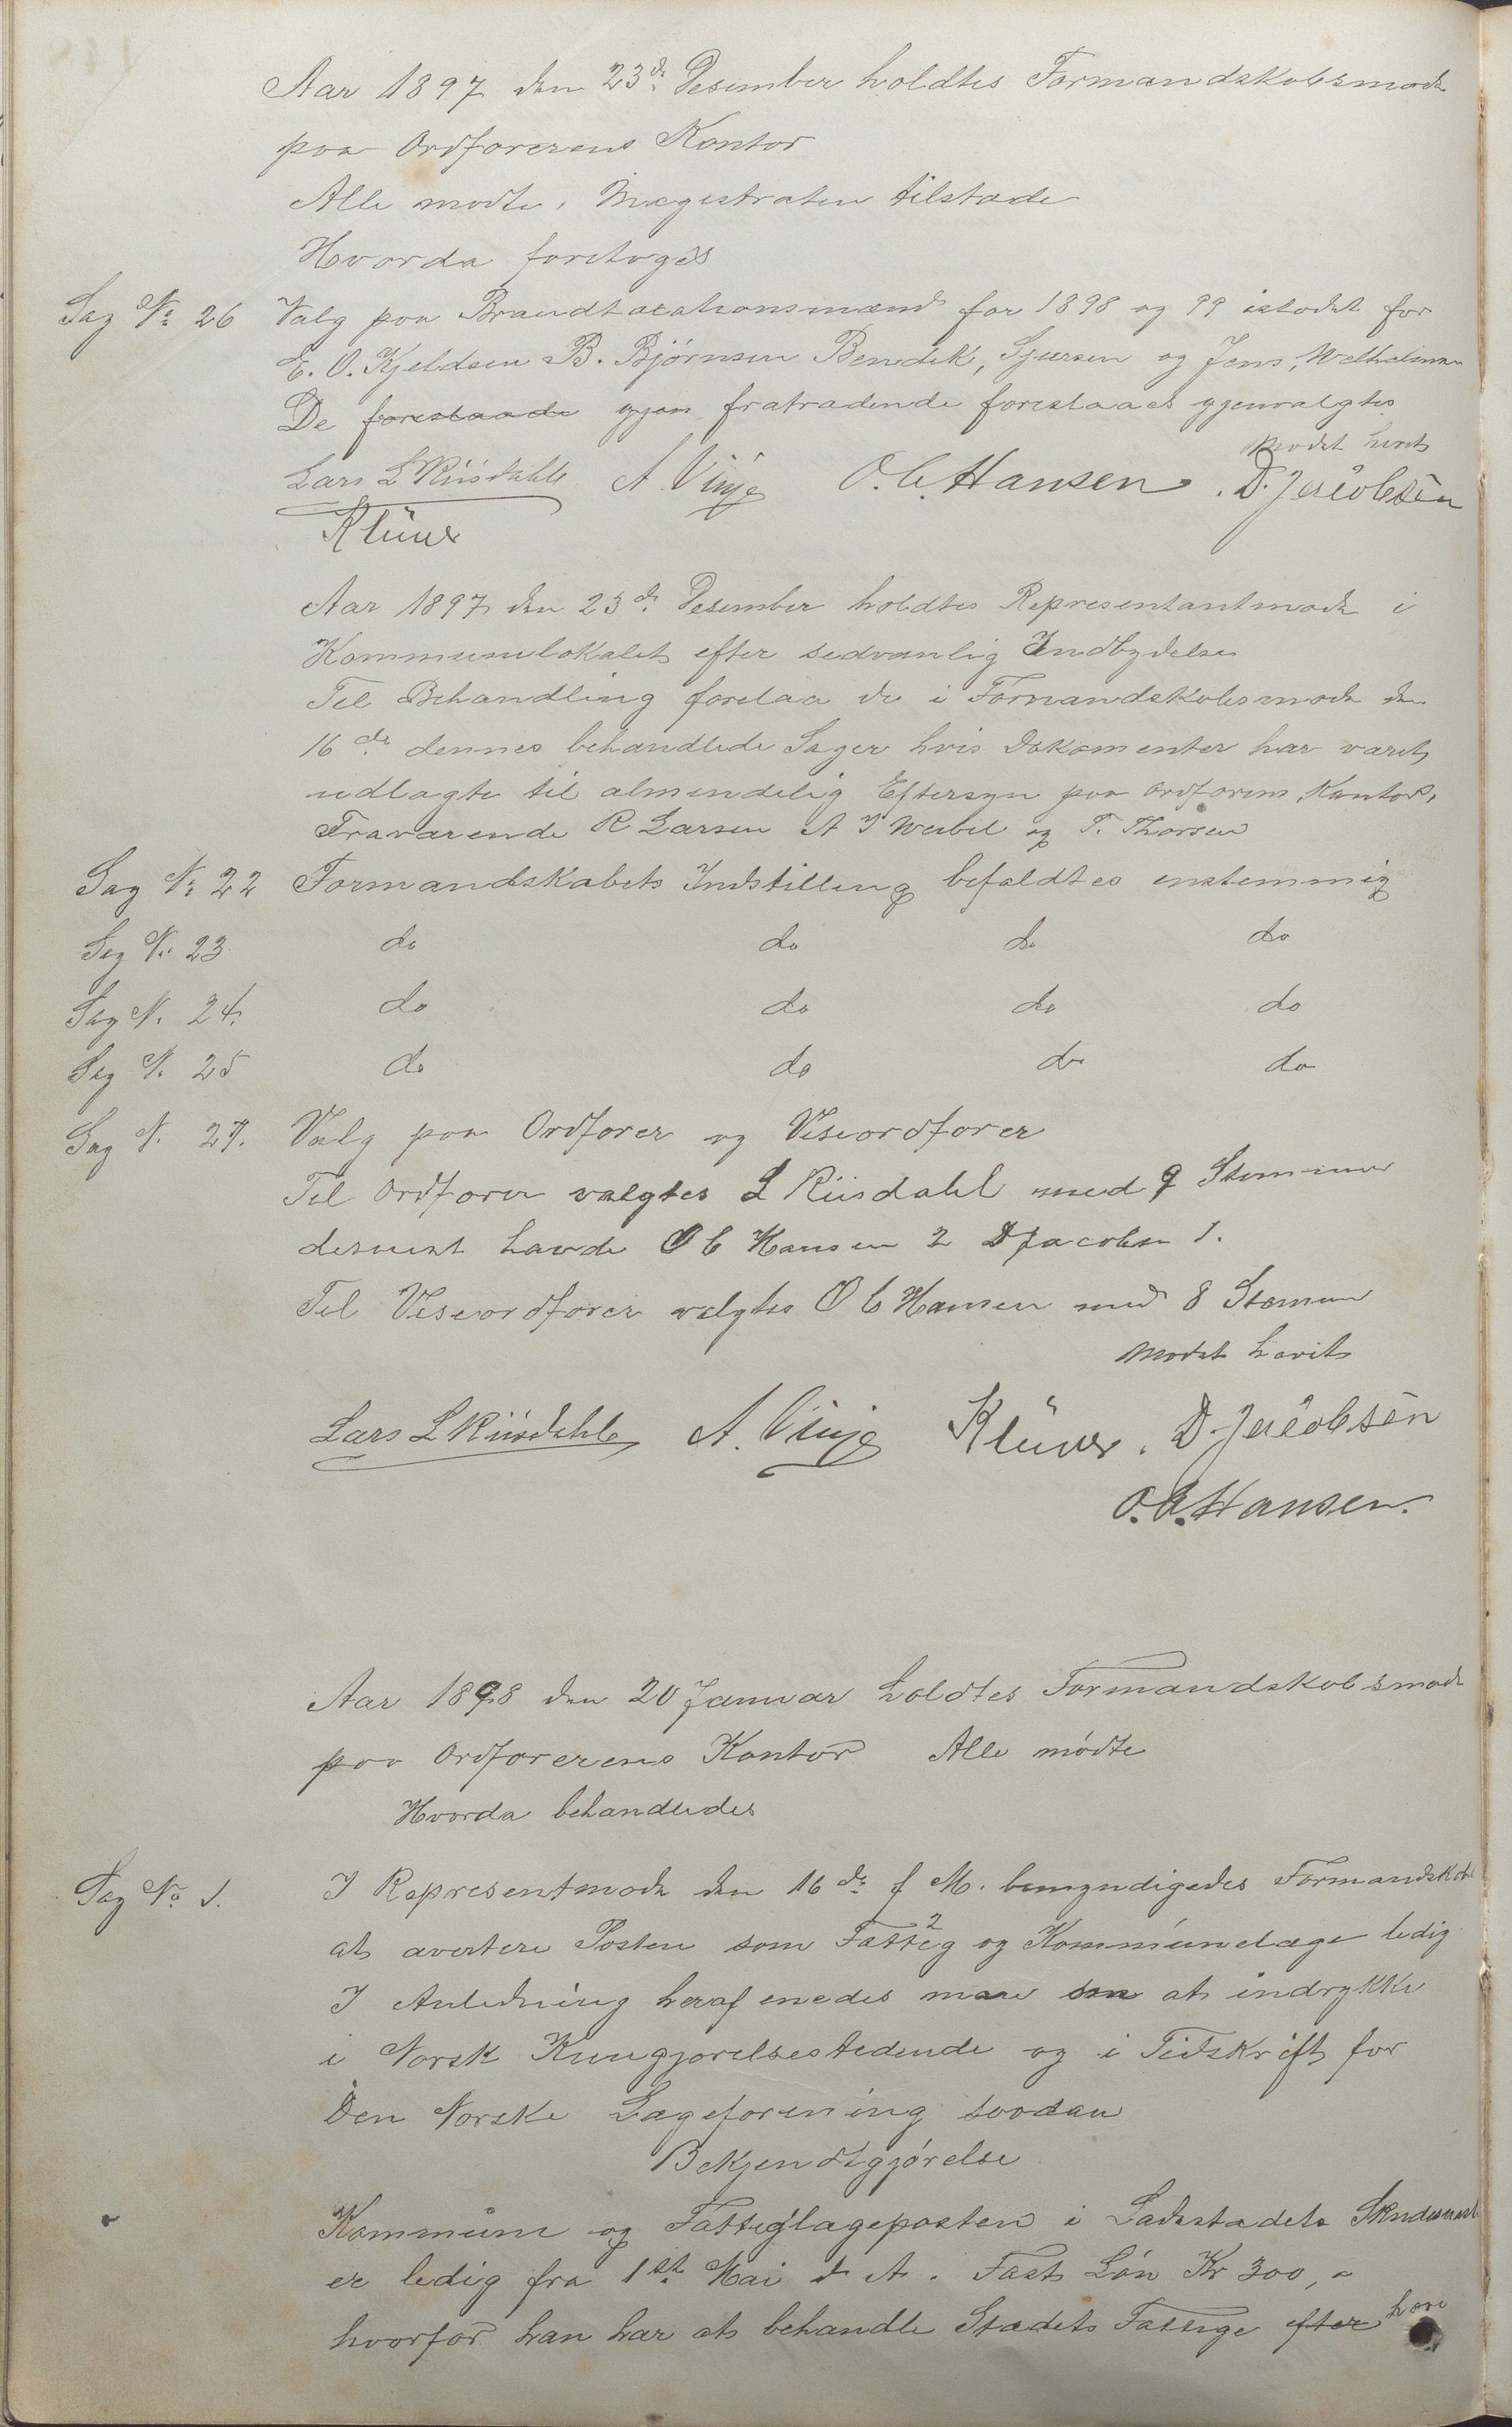 Aar 1897 den 23de Desember holdtes Formandskabsmøde
paa Ordførerens Kontor
Alle mødte, Magistraten tilstæde
Hvorda foretoges
Sag No 26 Valg paa Brandtaxationsmænd for 1898 og 99 istedet for
E. O. Kjeldsen B. Bjørnsen Bendik, Sjursen og Jens,
De forestaade gjen fratrædende foreslaaes gjenvalgtes
Mødet hævet
Lars L Riisdahl A. Vinje O. C. Hansen. D. Jacobsen
Klüver
Aar 1897 den 23de Desember holdtes Representantmøde i
Kommunelokalet efter sedvanlig Indbydelse
Til Behandling forelaa de i Formandskabsmøde den
16de dennes behandlede Sager hvis Dokomenter har været
udlagte til almindelig Eftersyn paa Ordførens Kontor,
Fraværende R Larsen A I Weibel og T. Thorsen
Sag No 22 Formandskabets Indstilling befaldtes enstemmig
Sag No 23 do do do do
Sag N. 24. do do do do
Sag N. 25 do do do do
Sag N. 27. Valg paa Ordfører og Viseordfører
Til Ordfører valgtes L Riisdahl med 9 Stemmer
desuent havde O C Hansen 2 D Jacobsen 1.
Til Viseordfører valgtes O C Hansen med 8 Stemmer
Mødet hævet
Lars L Riisdahl A. Vinje Klüver. D. Jacobsen
O. C. Hansen.
Aar 1898 den 20 Januar holdtes Formandskabsmøde
paa Ordførerens Kontor Alle mødte
Hvorda behandledes
Sag No 1. I Representmøde den 16de f M. bemyndigedes Formandskabet
at avertere Posten som Fattig og Kommunelæge ledig
I Anledning heraf enedes man om at indrykke
i Norsk Kungjørelsestidende og i Tidskrift for
Den Norske Lægeforening saadan
Bekjendtgjørelse
Kommune og Fattiglægeposten i Ladestedet Skudesnæs
er ledig fra 1st Mai d A. Fast Løn Kr 300,-
hvorfor han har at behandle Stedets Fattige efter